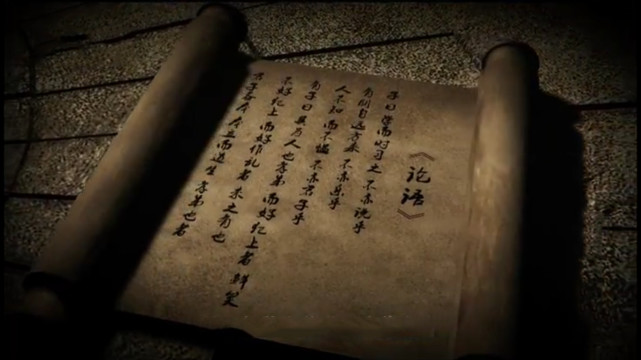 《论语》
子曰学而时习之 不亦说乎
有朋自远方来 不亦乐乎
人不知 而不愠 不亦君子乎
有子曰其为人也孝弟 而好犯上者 鲜矣
不好犯上 而好作乱者 未之有也
君子务本 本立而道生 孝弟也者